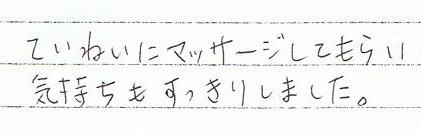 ていねいにマッサージしてもらい
気持ちもすっきりしました。